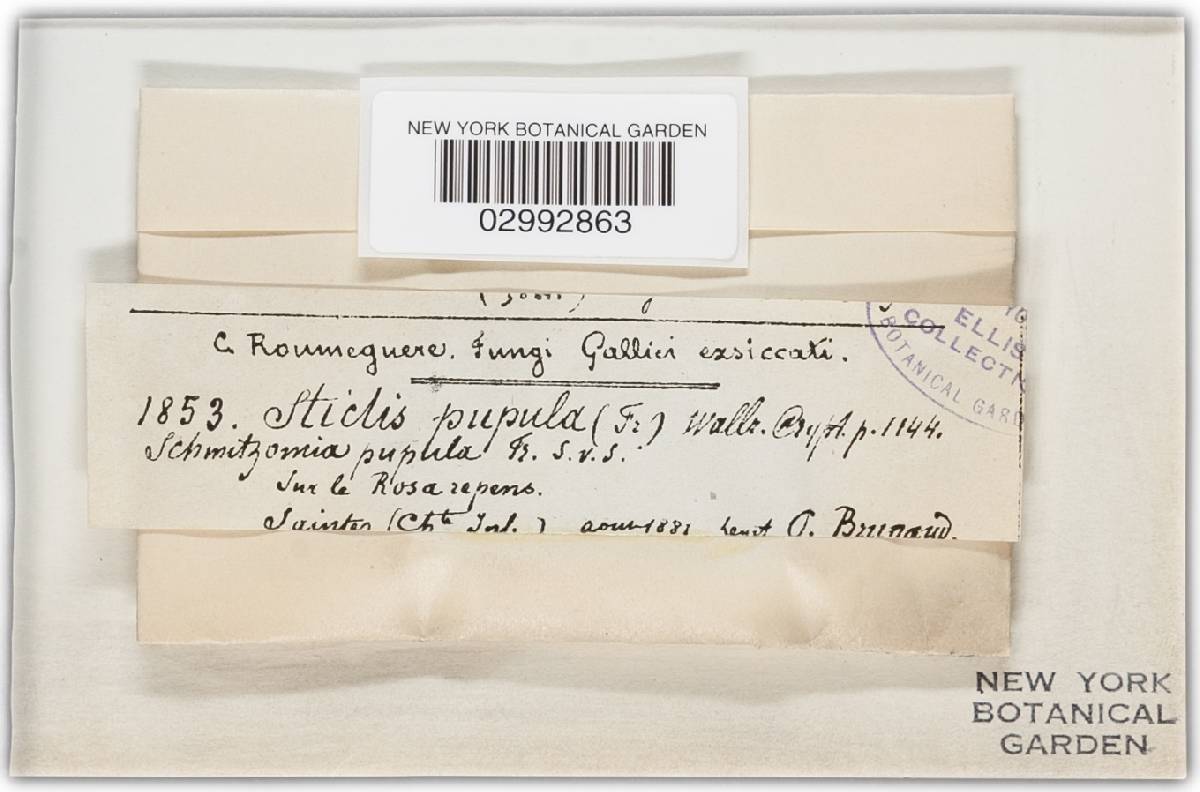 NEW YORK BOTANICAL GARDEN
02992863
C. Roumeguere. Fungi Gallici exsiccati.
ELLIS
COLLECTI
BOTANICAL GARD
1853. Stictis pupula (Fr) Wallr. Crypt. p. 1144.
Schmitzomia pupula Fr. S.v.S.
Sur le Rosa repens.
Saintes (Chte Inf.) aout 1881 P. Brunaud.
NEW YORK
BOTANICAL
GARDEN